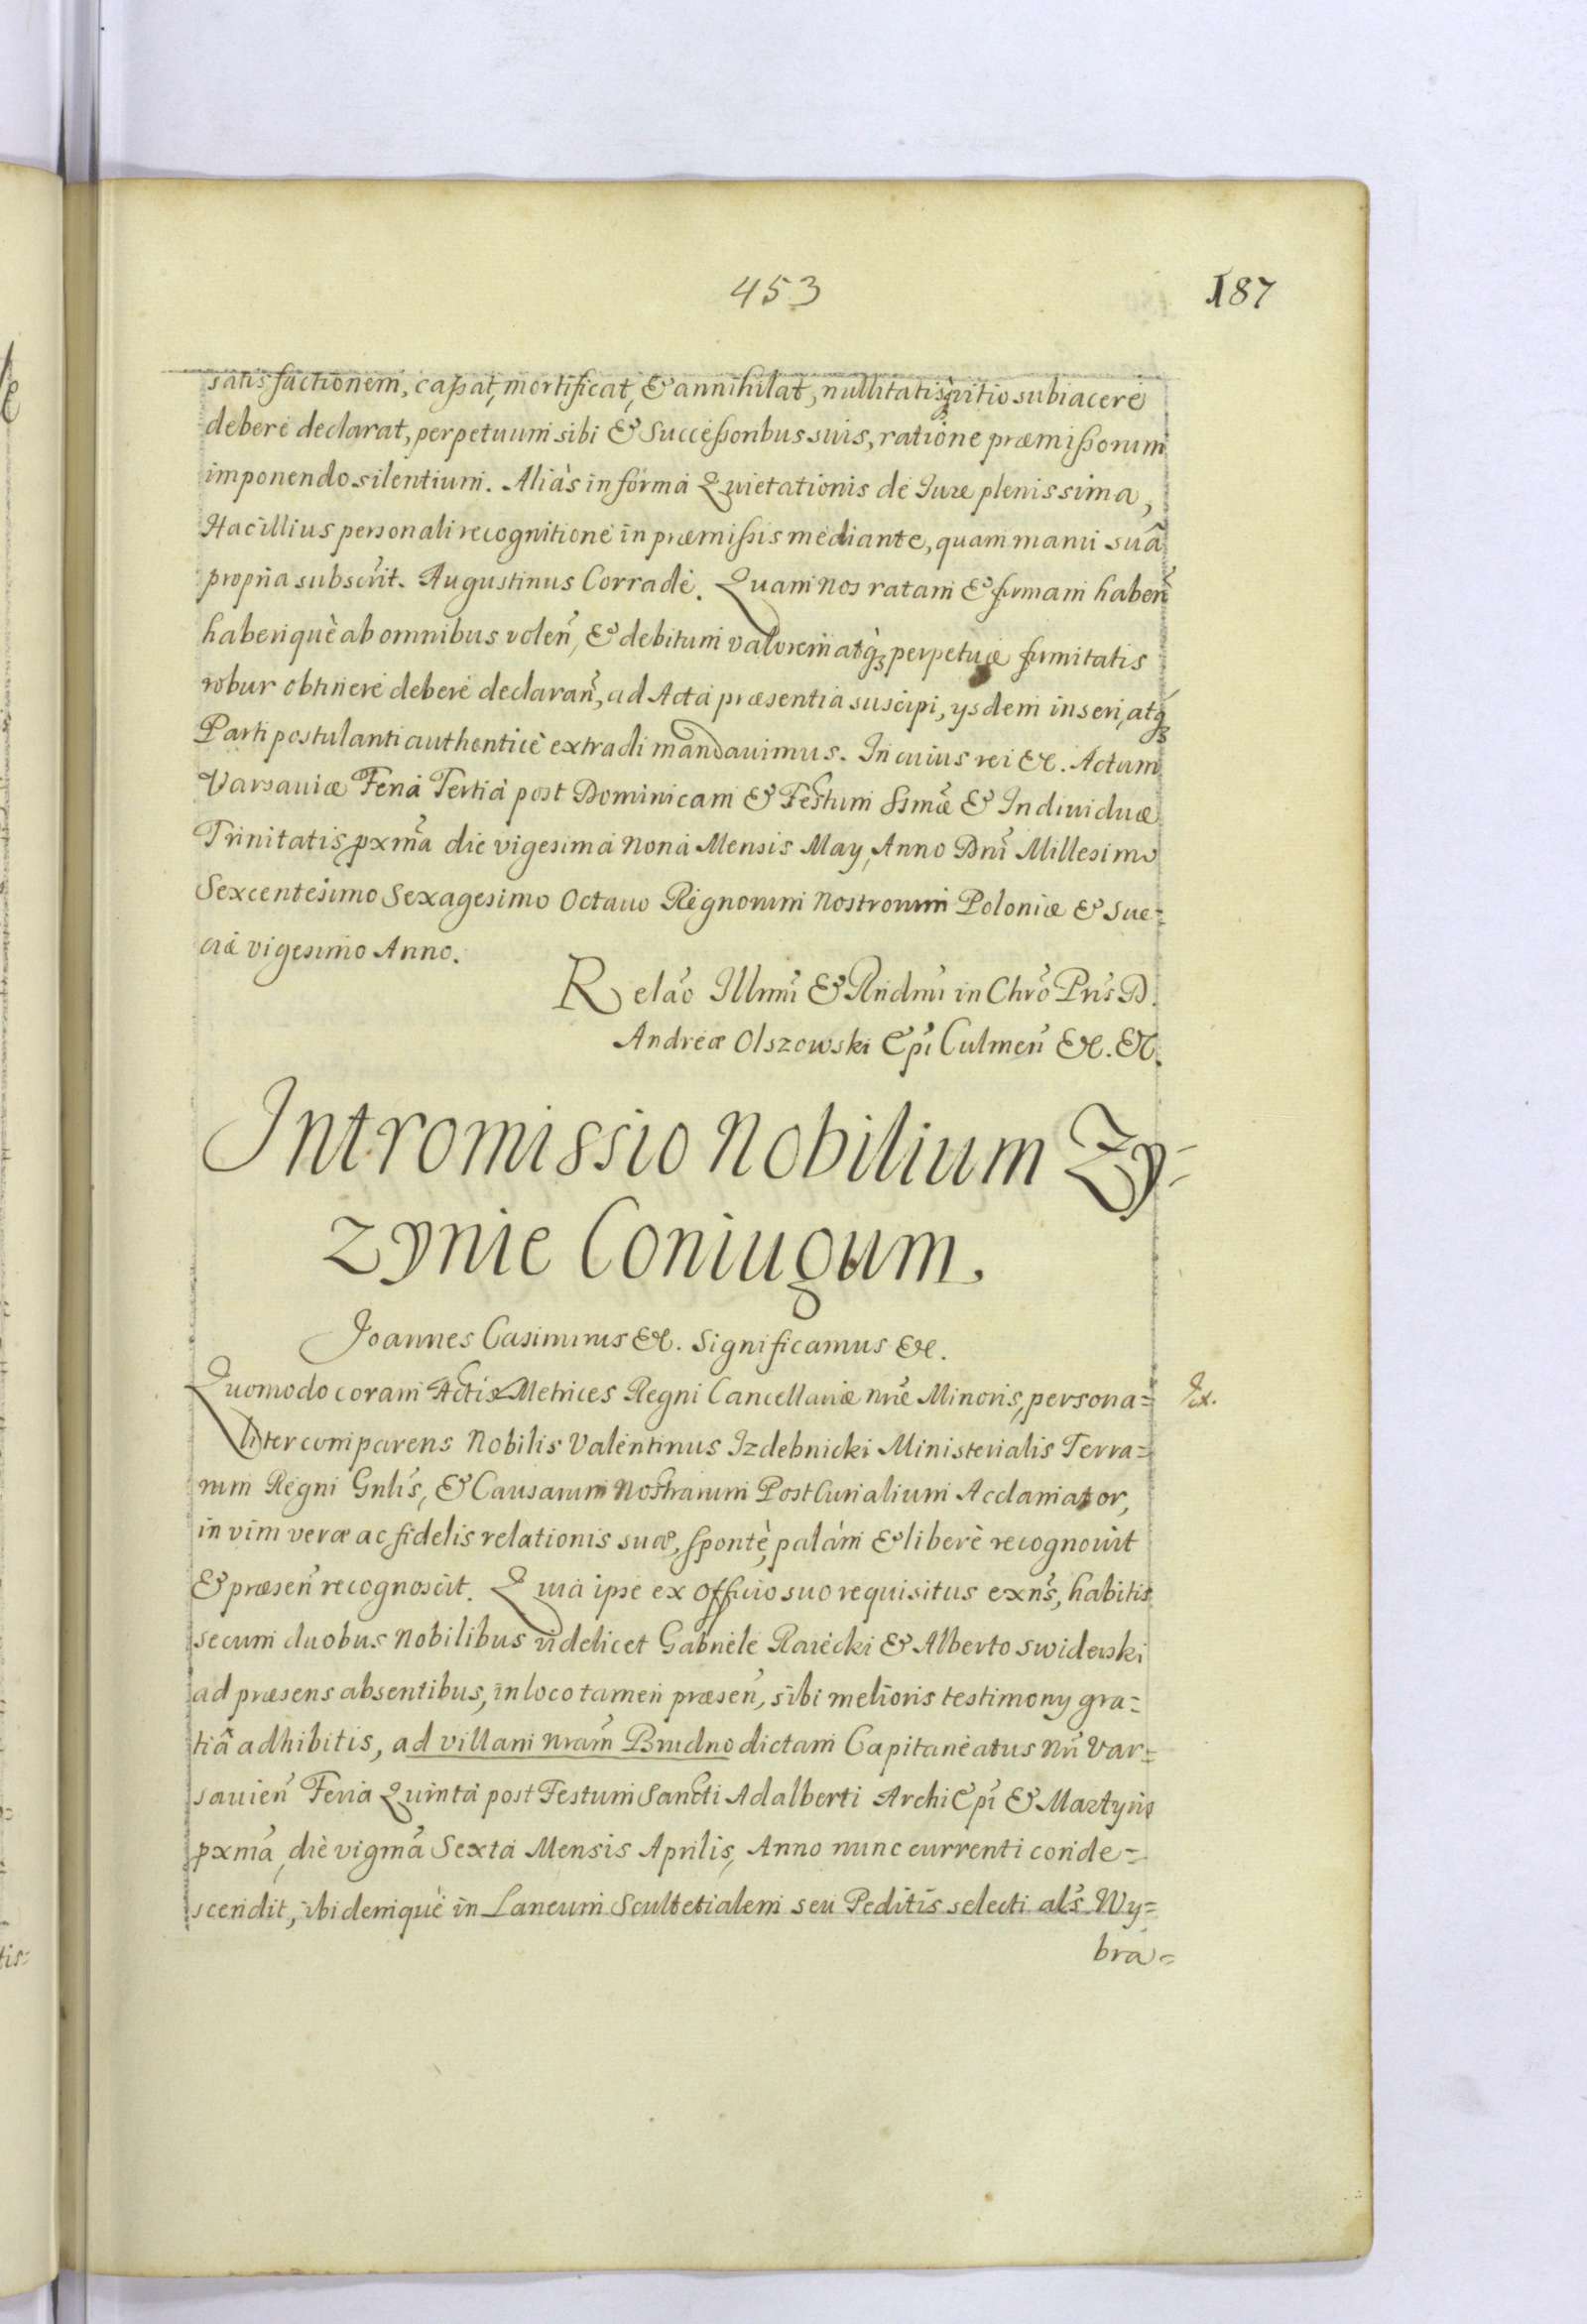 453
187
satisfactionem, caßat, mortificat, & annihilat, nullitatisq₃ vitio subiacere
debere declarat, perpetuum sibi & Succeßoribus suis, ratione præmißorum
imponendo silentium. Aliàs in forma Quietationis de Iure plenissima,
Hac illius personali recognitione in præmißis mediante, quam manu suâ
propria subscrit. Augustinus Corrade. Quam nos ratam & firmam haben̄
haberiquè ab omnibus volen̄, & debitum valorem atq₃ perpetuæ firmitatis
robur obtinere debere declaran̄, ad Acta præsentia suscipi, ysdem inseri, atq₃
Parti postulanti authenticè extradi mandauimus. In cuius rei &c. Actum
Varsauiæ Feria Tertia post Dominicam & Festum SSmæ & Indiuiduæ
Trinitatis pxma die vigesima nona Mensis May, Anno Dni Millesimo
Sexcentesimo Sexagesimo Octauo Regnorum Nostrorum Poloniæ & Sue=
ciæ vigesimo Anno.
Relao Illmi & Rndmi in Chro Pris D.
Andreæ Olszowski Epi Culmen̄ &c. &c.
Intromissio Nobilium Zy=
zynie Coniugum.
Joannes Casimirus &c. Significamus &c.
Quomodo coram Actis Metrices Regni Cancellariæ nræ Minoris, persona=
Ex.
liter comparens Nobilis Valentinus Izdebnicki Ministerialis Terra=
rum Regni Gnlis, & Causarum Nostrarum PostCurialium Acclamator,
in vim veræ ac fidelis relationis suæ, spontè, palàm & liberè recognouit
& præsen̄ recognoscit. Quia ipse ex officio suo requisitus exns, habitis
secum duobus Nobilibus videlicet Gabriele Raiecki & Alberto Swiderski
ad præsens absentibus, in loco tamen præsen̄, sibi melioris testimony gra=
tiâ adhibitis, ad villam nram Brudno dictam Capitaneatus Nri Var=
sauien̄ Feria Quinta post Festum Sancti Adalberti ArchiEpi & Martyris
pxma, die vigma Sexta Mensis Aprilis, Anno nunc currenti conde=
scendit, ibidemquè in Laneum Scultetialem seu Peditis selecti als Wy=
bra=